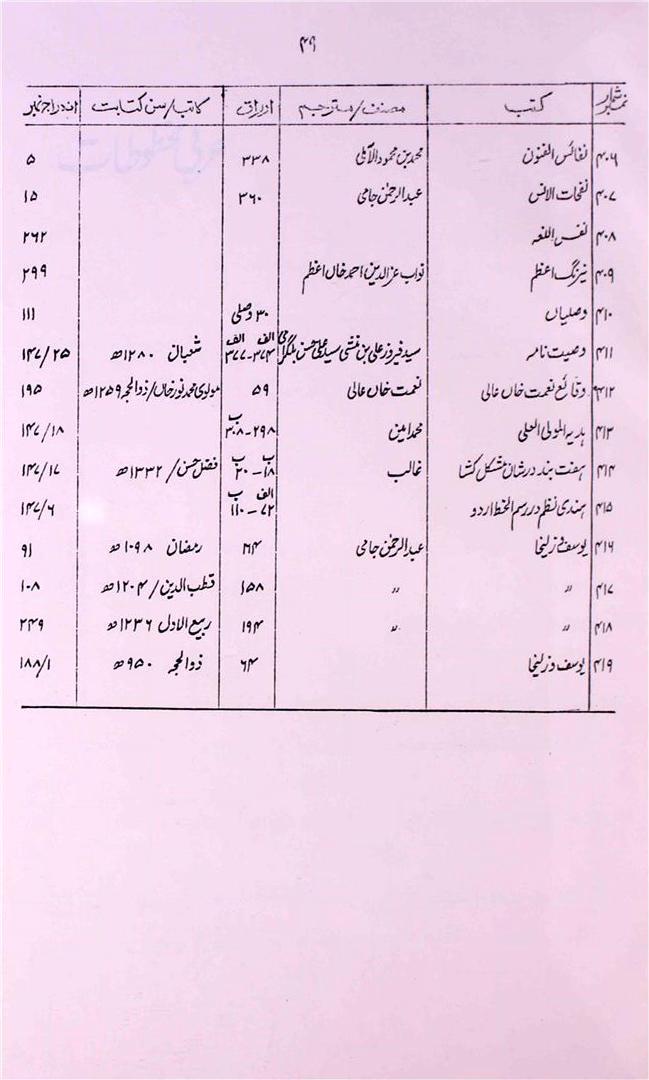 ۴۹
نمبر شمار کتب مصنف/مترجم اوراق کاتب/سن کتابت اندراج نمبر
۴۰۶ نفائس الفنون محمد بن محمود الآملی ۳۳۸ ۵
۴۰۷ نفحات الانس عبدالرحمٰن جامی ۳۶۰ ۱۵
۴۰۸ نفس اللغہ ۲۶۲
۴۰۹ نیرنگ اعظم نواب عزالدین احمد خاں اعظم ۲۹۹
۴۱۰ وصلیاں ۳۰ وصلی ۱۱۱
۴۱۱ وصیت نامہ سید فیروز علی بن منشی سید علی حسن بلگرامی ۳۷۴ الف - ۳۷۷ الف شعبان ۱۲۸۰ھ ۱۴۷/۲۵
۴۱۲ وقائع نعمت خاں عالی نعمت خاں عالی ۵۹ مولوی محمد نور خاں/ذوالحجہ ۱۲۵۹ھ ۱۹۵
۴۱۳ ہدیہ المولی العلی محمد امین ۲۹۸ - ۳۰۸ ب ۱۴۷/۱۸
۴۱۴ ہفت بند در شان مشکل کشا غالب ۱۸ ب - ۲۰ ب فضل حسن/۱۳۳۲ھ ۱۴۷/۱۷
۴۱۵ ہندی نظم در رسم الخط اردو ۷۲ الف - ۱۱۰ ب ۱۴۷/۶
۴۱۶ یوسف و زلیخا عبدالرحمٰن جامی ۶۴ رمضان ۱۰۹۸ھ ۹۱
۴۱۷ 〃 〃 ۱۵۸ قطب الدین/۱۲۰۴ھ ۱۰۸
۴۱۸ 〃 〃 ۱۹۴ ربیع الاول ۱۲۳۶ھ ۲۴۹
۴۱۹ یوسف و زلیخا ۶۴ ذوالحجہ ۹۵۰ھ ۱۸۸/۱